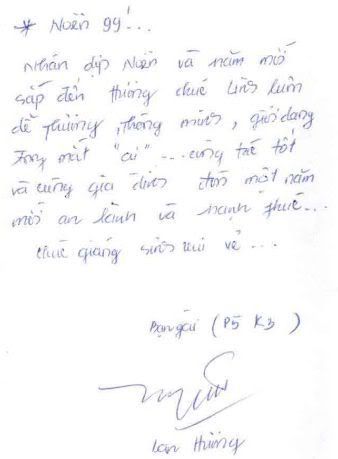 * Noên 99!...
Nhân dịp Noên và năm mới
sắp đến Hương chúc Linh luôn
dễ thương, thông minh, giỏi dang
trong mắt "ai" ... cũng trẻ tốt
và cùng gia đình đón một năm
mới an lành và hạnh phúc...
chúc giáng sinh vui vẻ...
Bạn gái (P5 K3)
Lan Hương